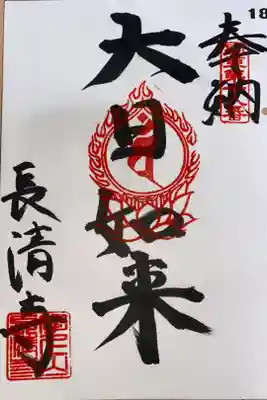 18
奉納
大日如来
長清寺